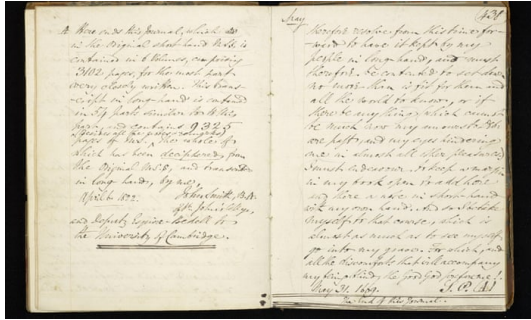 Here ends this Journal, which is
in the Original short hand M.S. is
contained in 6 Volumes, comprising
3102 pages, for the most part
very closely written. This trans-
cript in long-hand is contained
in 54 parts similar to this
and contains 9325
pages of
which has been decyphered, from
the Original M.S., and transcribed
in long-hand, by me,
John Smith,
April 1822. of St. John's College,
and Deputy Esquire-Bedell to
the University of Cambridge.
May 431
therefore resolve from this time for-
ward to have it kept by my
people in long-hand, and must
therefore be contented to set down
no more than is fit for them and
all the world to know, or if
there be any thing, which cannot
be much now my amours to Deb:
are past, and my eyes hindering
me in almost all other pleasures,
I must endeavour to keep a margin
in my book open to add here
and there a note in short-hand
with my own hand. And so I betake
myself to that course, which is
almost as much as to see myself
go into my grave: For which and
all the discomforts that will accompany
my being blind, the Good God prepare me!
May 31. 1669. S. P.
The End of this Journal.